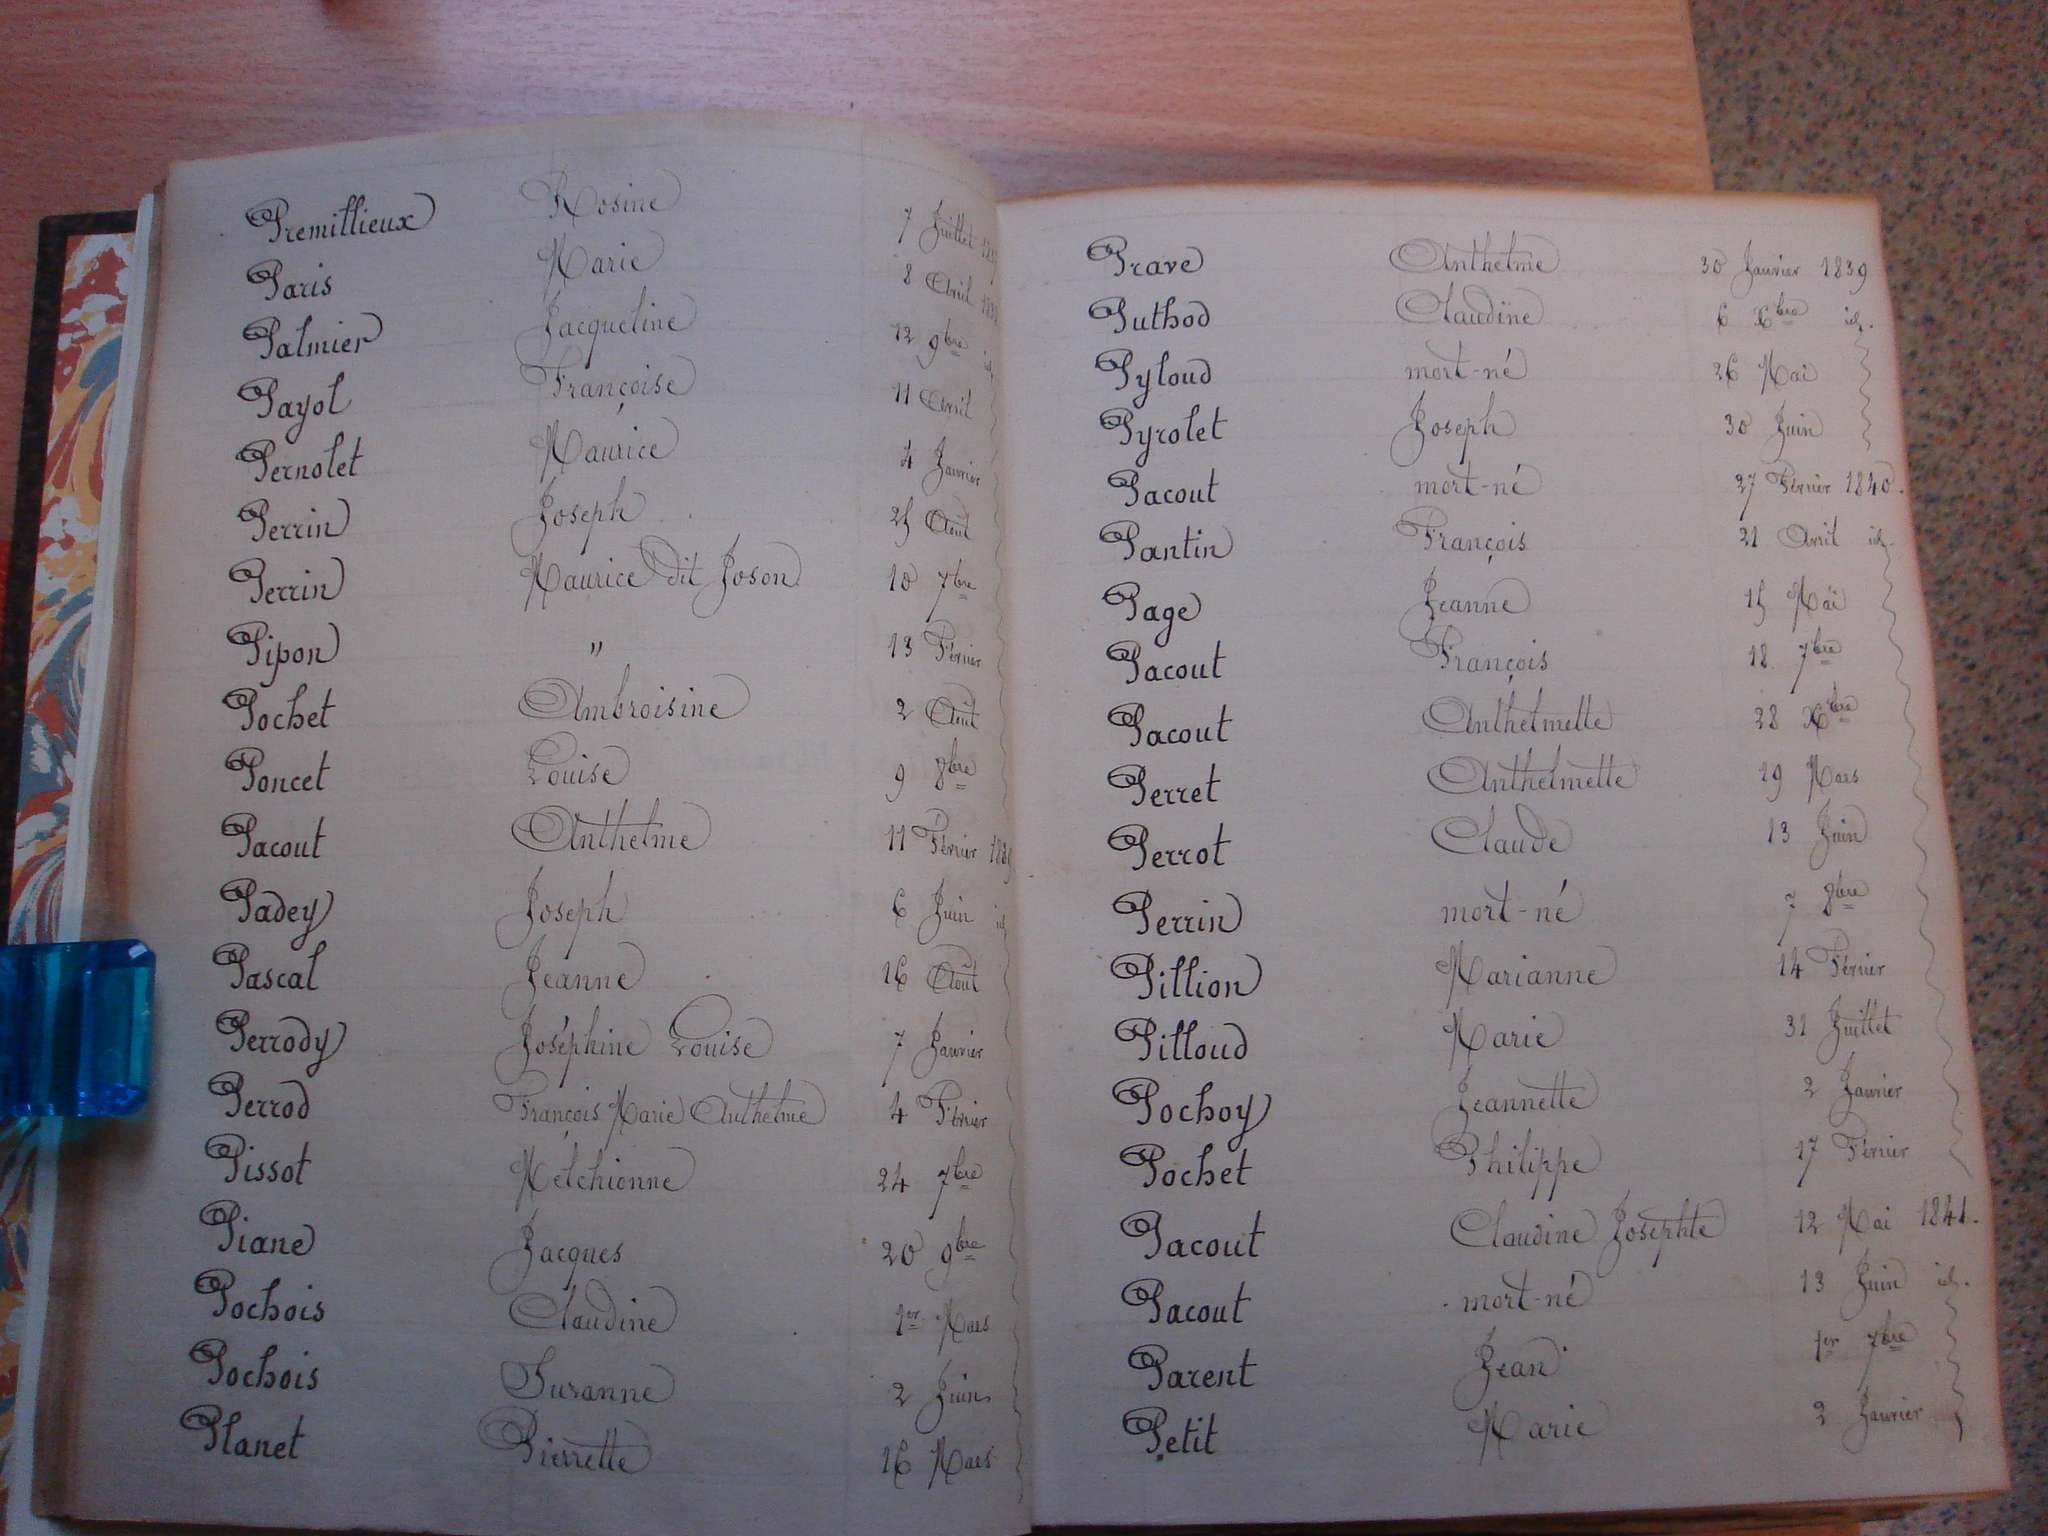 Premillieux Rosine 7 Juillet
Paris Marie 8 Avril
Palmier Jacqueline 12 9bre id.
Payol Françoise 11 Avril
Pernolet Maurice 4 Janvier
Perrin Joseph 25 Août
Perrin Maurice dit Joson 10 7bre
Pipon " 13 Février
Pochet Ambroisine 2 Août
Poncet Louise 9 8bre
Pacout Anthelme 11 Février 1839
Padey Joseph 6 Juin id
Pascal Jeanne 16 Août
Perrody Joséphine Louise 7 Janvier
Perrod François Marie Anthelme 4 Février
Pissot Melchionne 24 7bre
Piane Jacques 20 9bre
Pochois Claudine 1er Mars
Pochois Suzanne 2 Juin
Planet Pierrette 16 Mars
Prave Anthelme 30 Janvier 1839
Puthod Claudine 6 Xbre id.
Pyloud mort-né 26 Mai
Pyrolet Joseph 30 Juin
Pacout mort-né 27 Février 1840.
Pantin François 21 Avril id.
Page Jeanne 15 Mai
Pacout François 18 7bre
Pacout Anthelmette 28 Xbre
Perret Anthelmette 19 Mars
Perrot Claude 13 Juin
Perrin mort-né 7 8bre
Pillion Marianne 14 Février
Pilloud Marie 31 Juillet
Pochoy Jeannette 2 Janvier
Pochet Philippe 17 Février
Pacout Claudine Josephte 12 Mai 1841.
Pacout mort-né 13 Juin id.
Parent Jean 1er 7bre
Petit Marie 2 Janvier